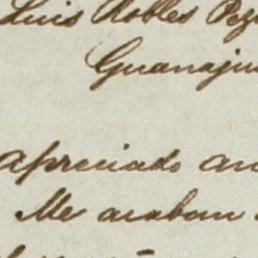 Luis Robles Pez
Guanaju
Apreciado am
Me acaban